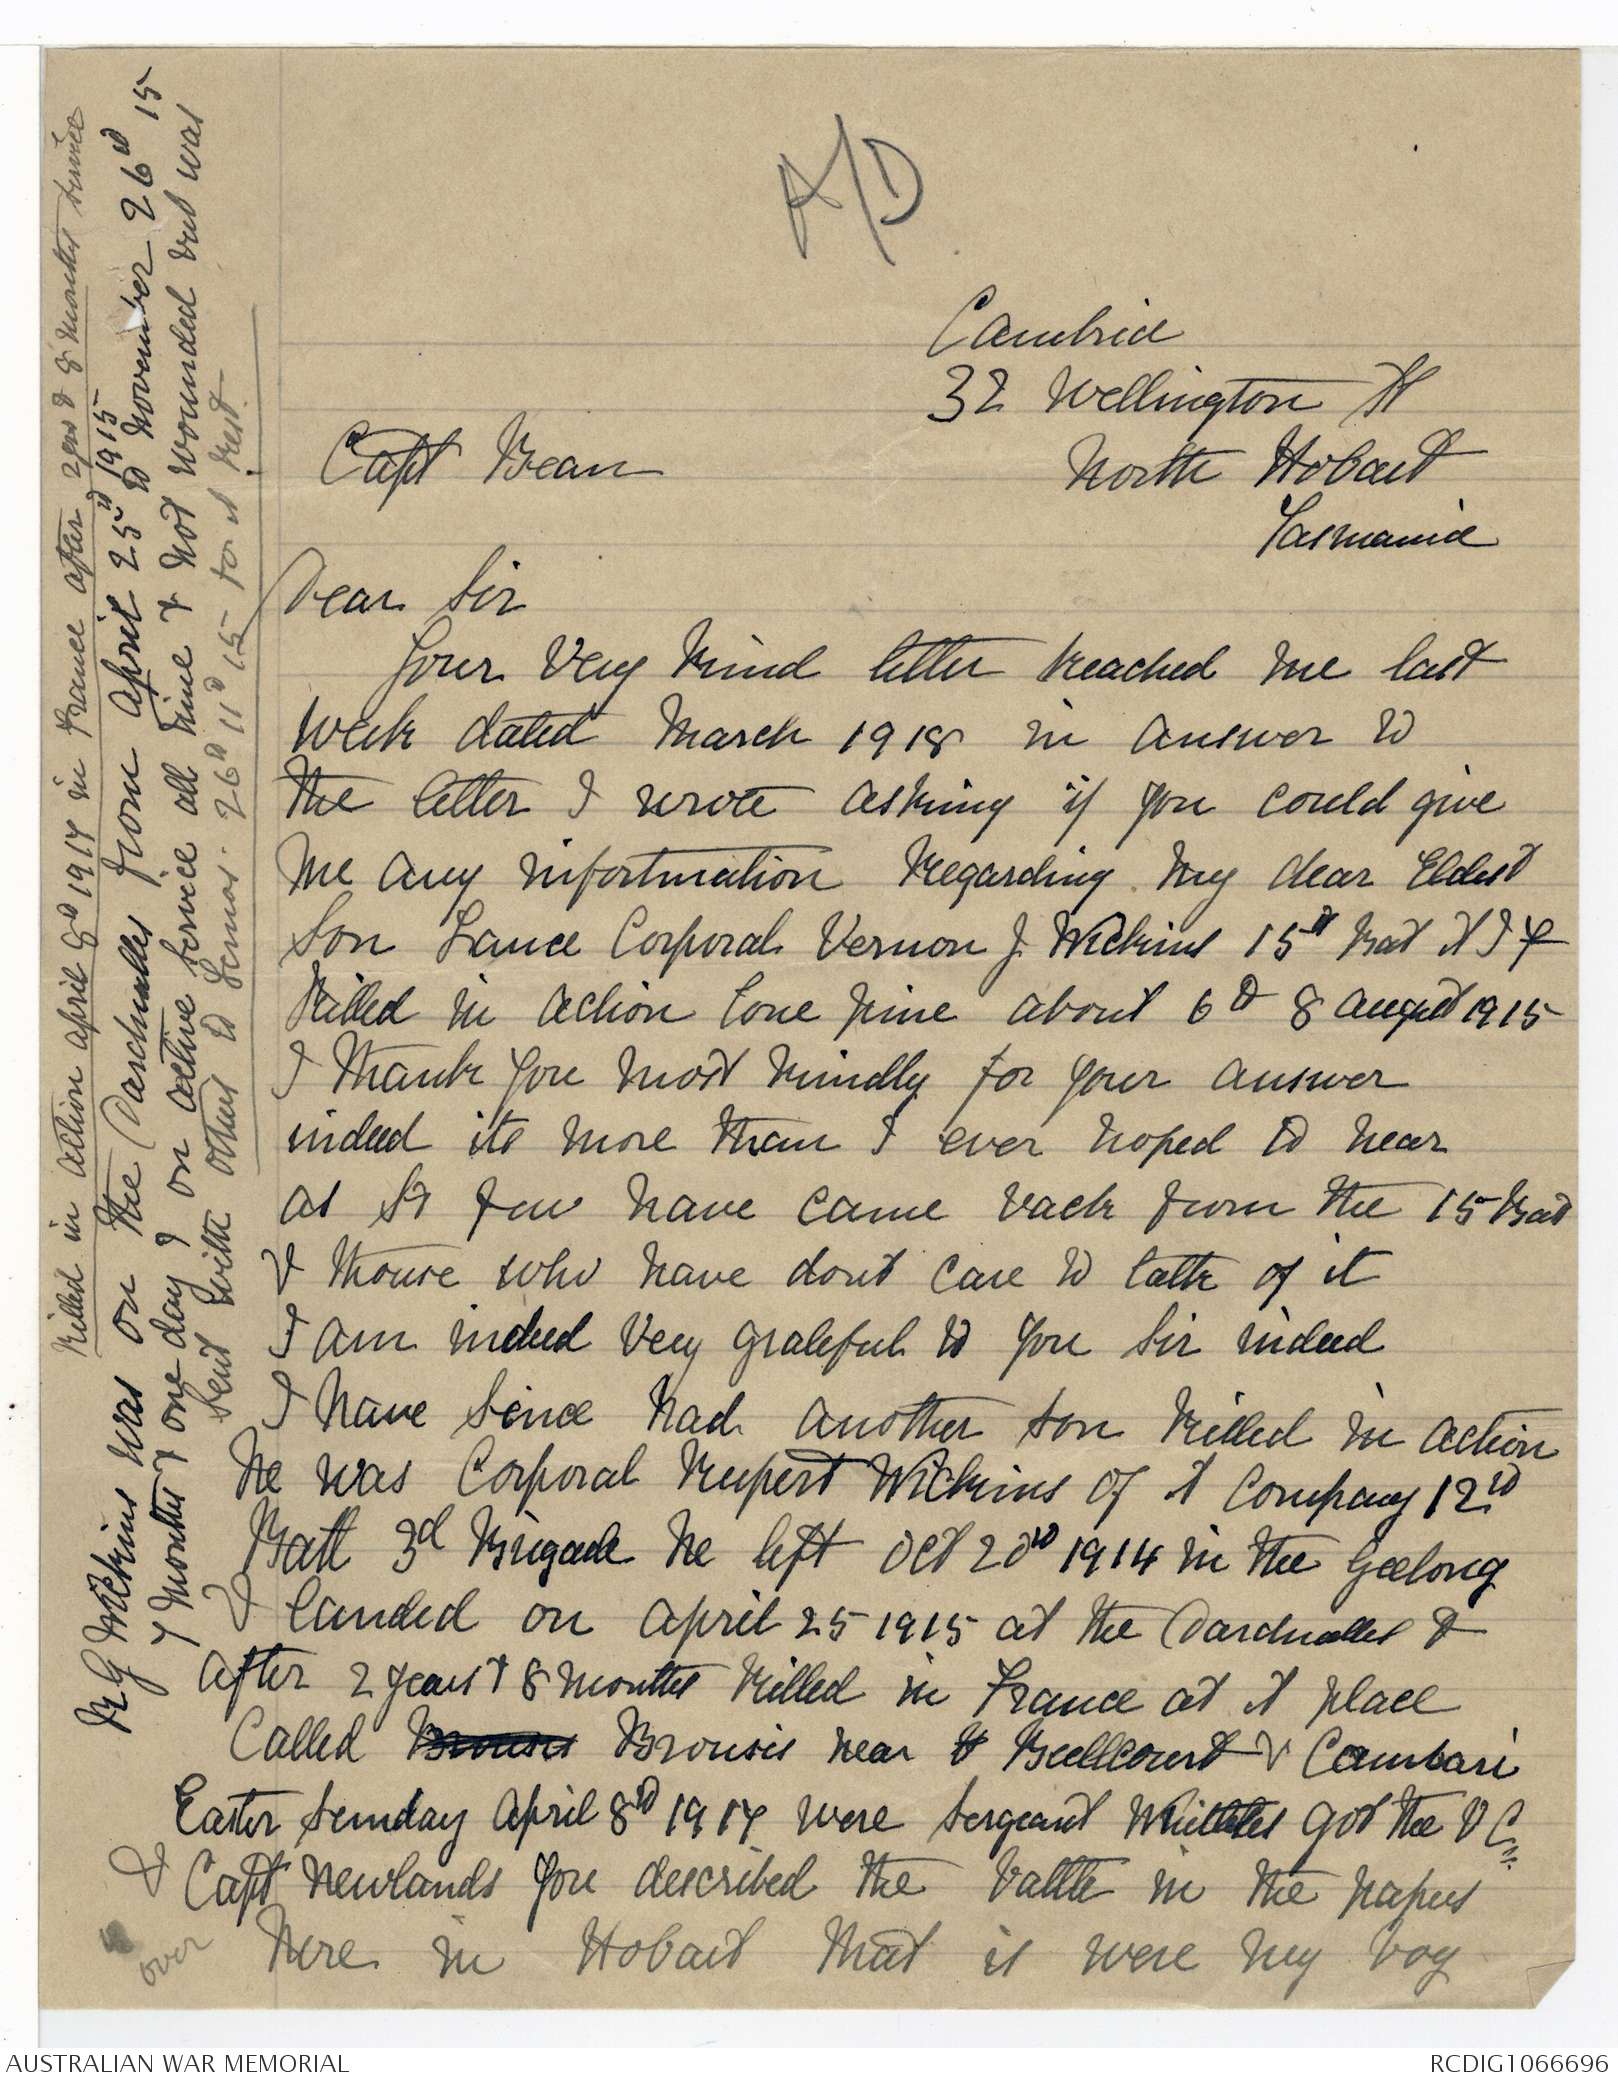 A/D
Cambria
32 Wellington St
North Hobart
Tasmania
Capt Bean
Dear Sir
Your Very Kind letter reached me last
week dated March 1918 in answer to
the letter I wrote asking if you could give
me any information regarding my dear Eldest
Son Lance Corporal Vernon J Wilkins 15th Bat A I F
Killed in action Lone Pine about 6th 8 August 1915
I thank you most kindly for your answer
indeed its more than I ever hoped to hear
as so few have came back from the 15 Bat
& those who have dont care to talk of it
I am indeed very grateful to you Sir indeed
I have since had another son killed in action
he was Corporal Rupert Wilkins of A Company 12th
Batt 3d Brigade he left Oct 20th 1914 in the Geelong
& landed on April 25 1915 at the Dardnalles &
after 2 years & 8 months killed in France at a place
Called Brousis near Bullcourt & Cambari
Easter Sunday April 8th 1917 were Sergeant Whittles got the V C
& Capt Newlands you described the battle in the papers
here in Hobart that is were my boy
over
R G Wilkins was on the Dardnalles from April 25th 1915 to November 26th 15
7 months & one day on active service all time & not wounded but was
sent with others to Lemos. 26th 11th 15 for a rest.
killed in action April 8th 1917 in France after 2 yrs & 8 months service
AUSTRALIAN WAR MEMORIAL
RCDIG1066696